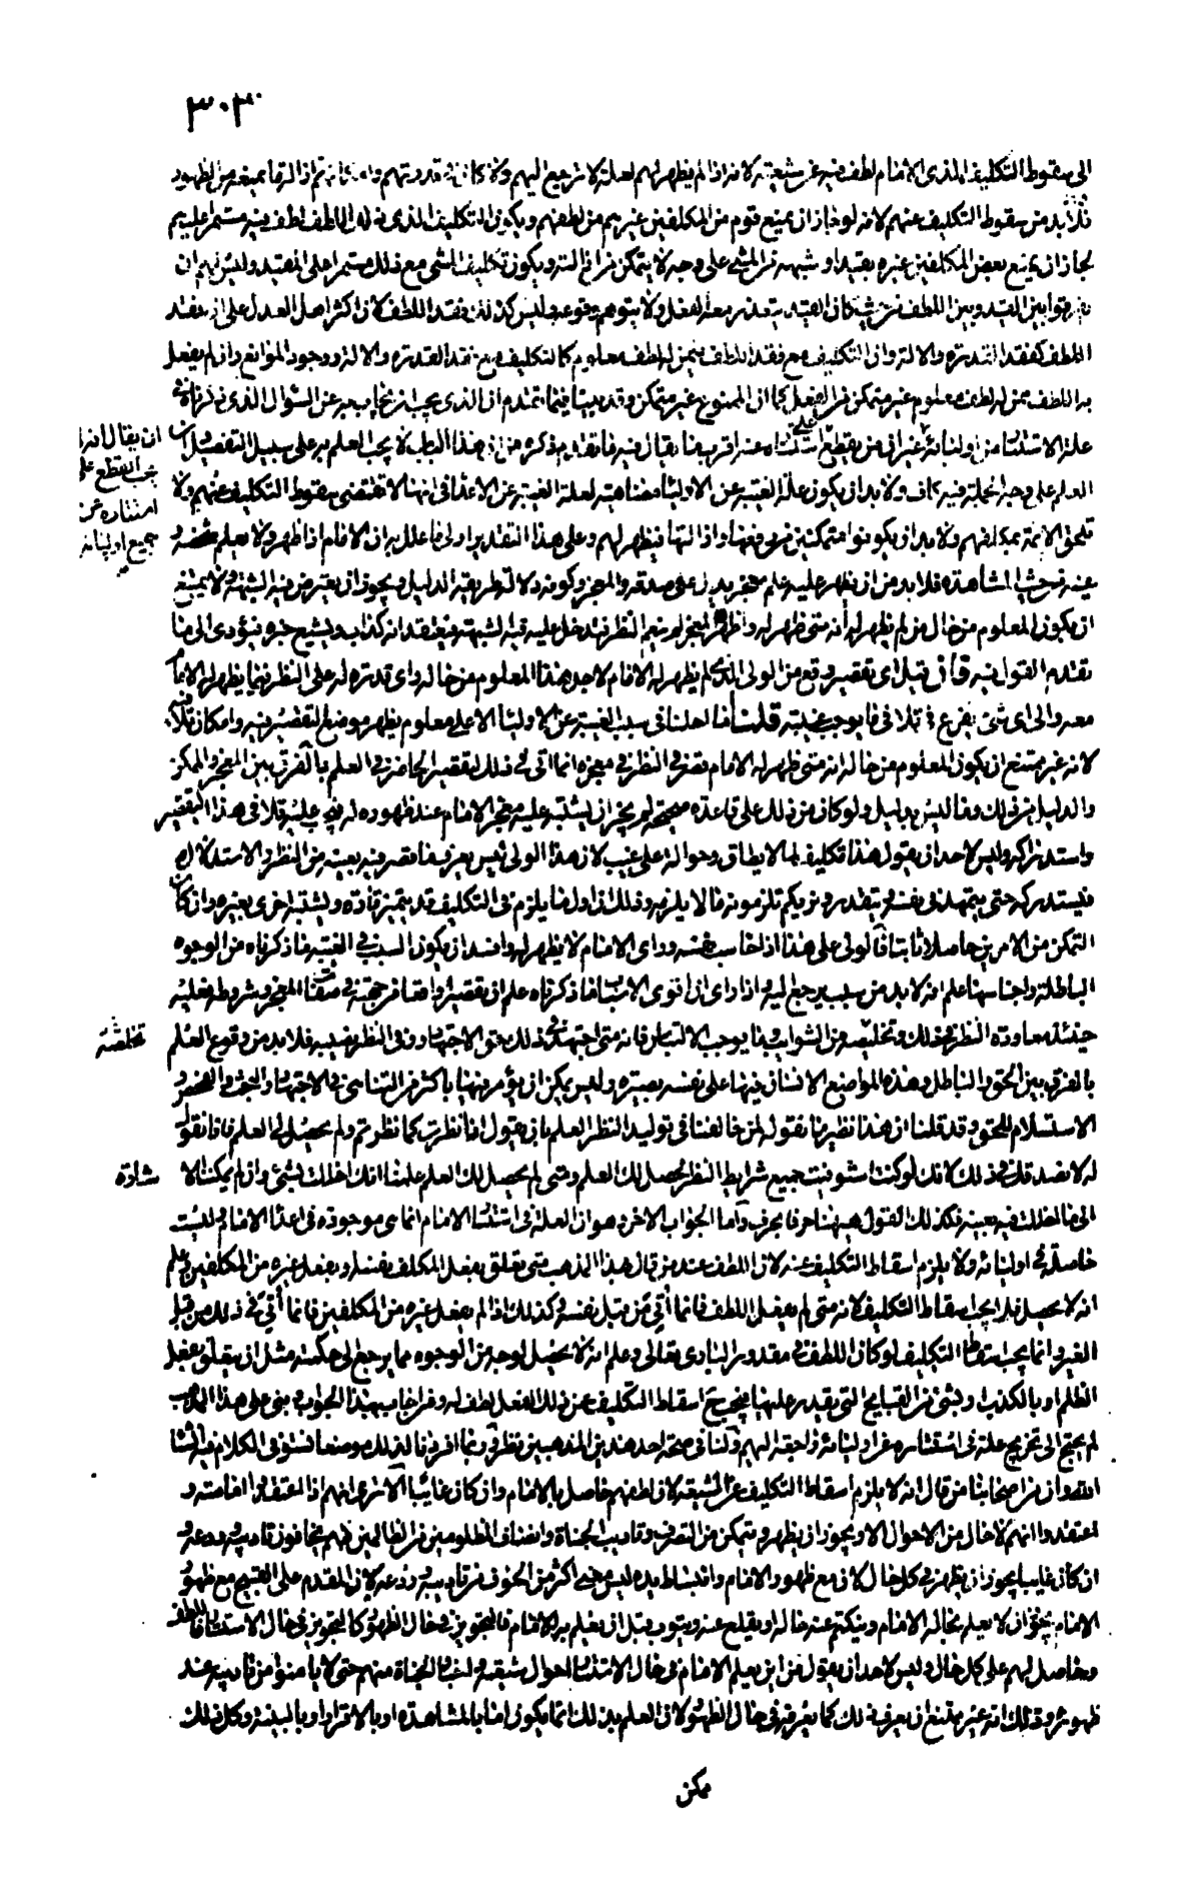 ٣٠٣
الى سقوط التكليف الذى الامام لطف فيه عن شيعته لانه اذا لم يظهر لهم لعلة لا ترجع اليهم ولا كان فى قدرتهم ازالتها يمنعه من الظهور
فلا بد من سقوط التكليف عنهم لانه لو جاز ان يمنع قوم من المكلفين غيرهم من لطفهم ويكون التكليف الذى ذلك اللطف لطف فيه مستمرا عليهم
لجاز ان يمنع بعض المكلفين غيره بقيد او شبهه من المشى على وجه لا يتمكن من ازالته ويكون تكليف المشى مع ذلك مستمرا على المقيد وليس لهم ان
يفرقوا بين القيد وبين اللطف من حيث كان القيد يتعذر معه الفعل ولا يتوهم وقوعه وليس كذلك فقد اللطف لان اكثر اهل العدل على ان فقد
اللطف كفقد القدرة والالة وان التكليف مع فقد اللطف فيمن له لطف معلوم كالتكليف مع فقد القدرة والالة ووجود الموانع وان لم يفعل
به اللطف ممن له لطف معلوم غير متمكن من الفعل كما ان الممنوع غير متمكن وقد بينا فيما تقدم ان الذى يجب ان يجاب به عن السؤال الذى ذكرناه فى
علة الاستتار من اوليائه غير
العلم على وجه الجملة فيه كاف ولا بد ان يكون علة الغيبة عن الاوليا مضاهية لعلة الغيبة عن الاعدا فى انها لا تقتضى سقوط التكليف عنهم ولا
تلحق الائمة بمكلفهم ولا بد ان يكونوا متمكنين من رفعها وازالتها فيظهر لهم وعلى هذا التقدير اولى ما علل به ان الامام اذا ظهر ولا يعلم شخصه و
عينه من حيث المشاهدة فلا بد من ان يظهر عليه علم معجز يدل على صدقه والمعجز وكونه دلالة طريقه الدليل ويجوز ان يعترض فيه الشبهة ولا يمتنع
ان يكون المعلوم من حال من لم يظهر له انه متى ظهر له واظهر المعجز لم ينعم النظر فتدخل عليه فيه الشبهة فيعتقد انه كذاب ويشيع خبره فيؤدى الى ما
تقدم القول فيه فان قيل اى تقصير وقع من الولى الذى لم يظهر له الامام لاجل هذا المعلوم من حاله واى قدرة له على النظر فيما يظهر له الامام
معه والى اى شئ يفزع فى تلافى ما يوجب غيبته قلنا ما احلنا فى سبب الغيبة عن الاوليا الا على معلوم يظهر موضع التقصير فيه وامكان تلافيه
لانه غير ممتنع ان يكون المعلوم من حاله انه متى ظهر له الامام قصر فى النظر فى معجزه انما اتى فى ذلك لتقصيره الحاضر فى العلم بالفرق بين المعجز والممكن
والدليل من ذلك وما ليس بدليل ولو كان من ذلك على قاعدة صحيحة لم يجز ان يشتبه عليه معجز الامام عند ظهوره له فيجب عليه تلافى هذا التقصير
واستدراكه وليس لاحد ان يقول هذا تكليف لما لا يطاق وحوالة على غيب لان هذا الولى ليس يعرف ما قصر فيه بعينه من النظر والاستدلال
فيستدركه حتى يتمهد فى نفسه ويتقرر ونراكم تلزمونه ما لا يلزمه وذلك ان ما يلزم فى التكليف قد يتميز تارة ويشتبه اخرى بغيره وان كان
التمكن من الامرين حاصلا ثابتا فالولى على هذا اذا حاسب نفسه وراى ان الامام لا يظهر له وافسد ان يكون السبب فى الغيبة ما ذكرناه من الوجوه
الباطلة واجناسها علم انه لا بد من سبب يرجع اليه واذا راى ان اقوى الاسباب ما ذكرناه علم ان تقصيرا واقعا من جهته فى صفات المعجز وشروطه فعليه
حينئذ معاودة النظر فى ذلك وتخليصه من الشوايب وما يوجب الالتباس فانه متى اجتهد فى ذلك حق الاجتهاد ووفى النظر نصيبه فلا بد من وقوع العلم
بالفرق بين الحق والباطل وهذه المواضع الانسان فيها على نفسه بصيرة وليس يمكن ان يؤمر فيها باكثر من التناهى فى الاجتهاد والبحث والفحص و
الاستسلام للحق وقد قلنا ان هذا نظير ما نقوله لمن خالفنا فى توليد النظر العلم بان يقول اننا نظرت كما نظرتم ولم يحصل لى العلم فانا نقول
له لا نصدقك فى ذلك لانك لو كنت استوفيت جميع شرايط النظر لحصل لك العلم ومتى لم يحصل لك العلم علمنا انك اخللت بشئ وان لم يمكننا الاشارة
الى ما اخللت فيه بعينه فكذلك القول ههنا حرفا بحرف واما الجواب الاخر وهو ان العلة فى استتار الامام انما هى موجودة فى اعدا الامام وليست
حاصلة فى اوليائه ولا يلزم اسقاط التكليف عنه لان اللطف عند من قال هذا المذهب متى تعلق بفعل المكلف نفسه او بفعل غيره من المكلفين علم
انه لا يحصل فلا يجب اسقاط التكليف لانه متى لم يفعل اللطف فانما اتى من قبل نفسه وكذلك اذا لم يفعل غيره من المكلفين فانما اتى فى ذلك من قبل
الغير وانما يجب اسقاط التكليف لو كان اللطف فى مقدور البارى تعالى وعلم انه لا يحصل لوجه من الوجوه مما يرجع الى حكمته مثل ان يتعلق بفعل
الظلم او بالكذب او بشئ من القبايح التى يقدر عليها فيجب اسقاط التكليف عمن ذلك الفعل لطف له ومن اجاب بهذا الجواب وبنى على هذا المذهب
لم يحتج الى تخريج علة فى استتاره عن اوليائه ولنا فى صحة احد هذين المذهبين نظر وربما افردنا لذلك موضعا نستوفى الكلام فيه انشا
الله وان من اصحابنا من قال انه لا يلزم اسقاط التكليف عن الشيعة لان لطفهم حاصل بالامام وان كان غائبا الا ترى انهم اذا اعتقدوا امامته و
اعتقدوا انهم لا حال من الاحوال الا ويجوز ان يظهر ويتمكن من التصرف وتاديب الجناة وانصاف المظلومين من الظالمين فهم يخافون تاديبه وردعه و
ان كان غايبا يجوز ان يظهر فى كل حال كان مع ظهور الامام وانبساط يده ليس يجب اكثر من الخوف من تاديبه وردعه لان المقدم على القبيح مع ظهور
الامام يجوز ان لا يعلم بحاله الامام وينكتم عنه حاله او يقلع عنه ويتوب قبل ان يعلم به الامام فالتجويز فى حال الظهور كالتجويز فى حال الاستتار واللطف
حاصل لهم على كل حال وليس لاحد ان يقول من اين يعلم الامام فى حال الاستتار احوال شيعته وارتكاب الجناة منهم حتى لا يامنوا من تاديبه عند
ظهوره وذلك انه غير ممتنع ان يعرف ذلك كما يعرفه فى حال الظهور لان العلم بذلك انما يكون اما بالمشاهدة او بالاقرار او بالبينة وكل ذلك
ممكن
ان يقال انه لا
يجب القطع على
استتاره عن
جميع اوليائه
تخلصه
شارة